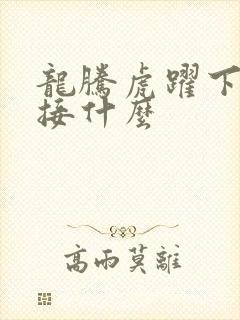 龍騰虎躍下
接什麼
高雨莫離